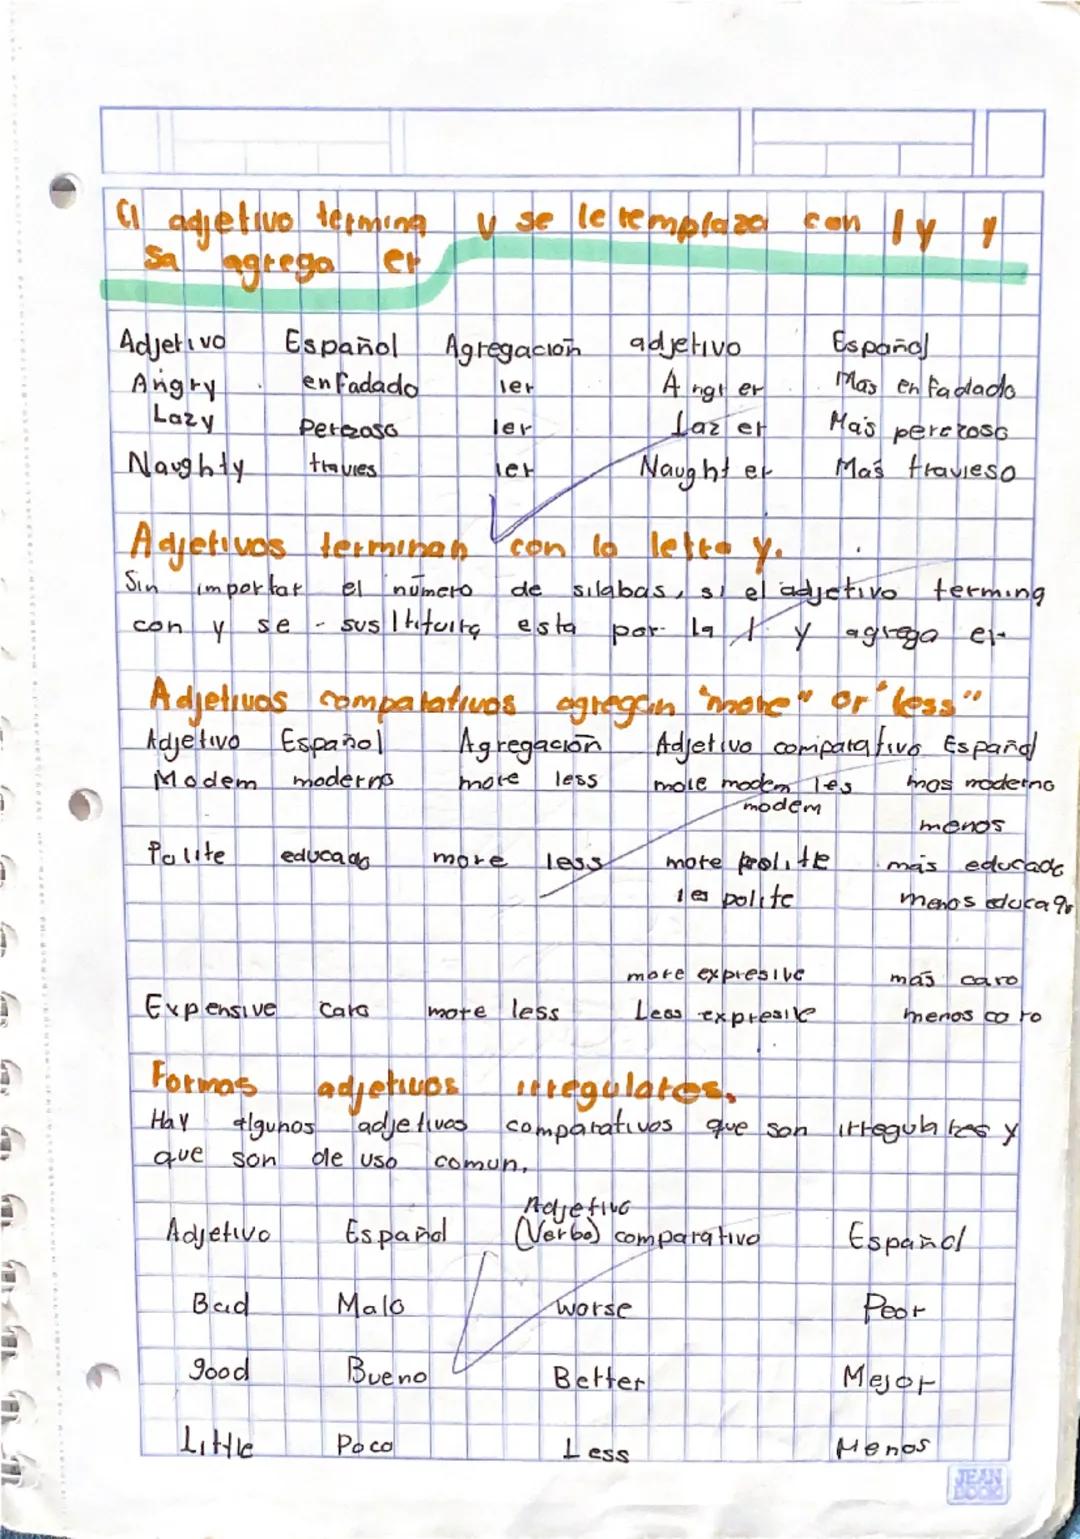 El adjetivo termina y se le remplaza con ly y
sa agrega er
Adjetivo Español Agregación adjetivo Español
Angry enfadado ier Angrier Mas enfadado
Lazy Perezoso ier Lazer Más perezoso
Naughty travies ier Naughter Más travieso
Adjetivos terminan con la letra y.
Sin importar el número de silabas, si el adjetivo termina
con y se sustituira esta por la i y agrega er
Adjetivos comparativos agregan "more" or "less"
Adjetivo Español Agregación Adjetivo comparativo Español
Modern moderno more less more modern les mas moderno
modern menos
Polite educado more less more prolite más educado
les polite menos educado
more expresive más caro
Expensive caro more less Less expresive menos caro
Formas adjetivos irregulares.
Hay algunos adjetivos comparativos que son irregulares y
que son de uso comun.
Adjetivo
Adjetivo Español (Verbo) comparativo Español
Bad Malo worse Peor
good Bueno Better Mejor
Little Poco Less Menos
JEAN
BOOK